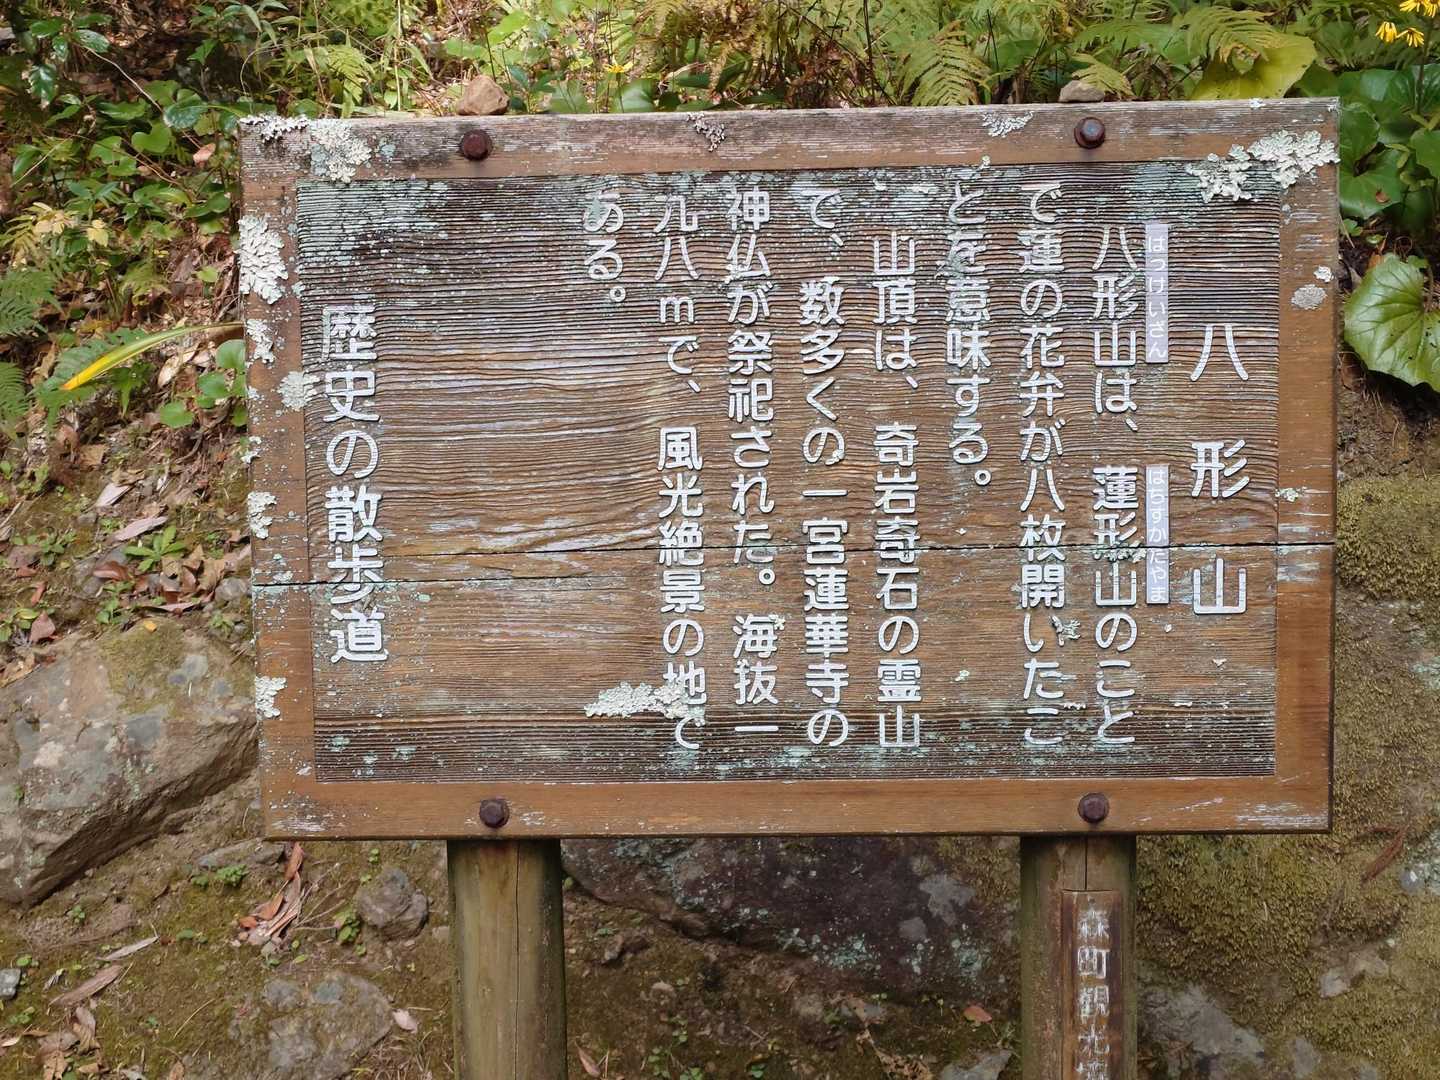 八形山
はっけいざん
はちすかたやま
八形山は、蓮形山のこと
で蓮の花弁が八枚開いたこ
とを意味する。
山頂は、奇岩奇石の霊山
で、数多くの一宮蓮華寺の
神仏が祭祀された。海抜一
九八mで、風光絶景の地で
ある。
歴史の散歩道
森町観光